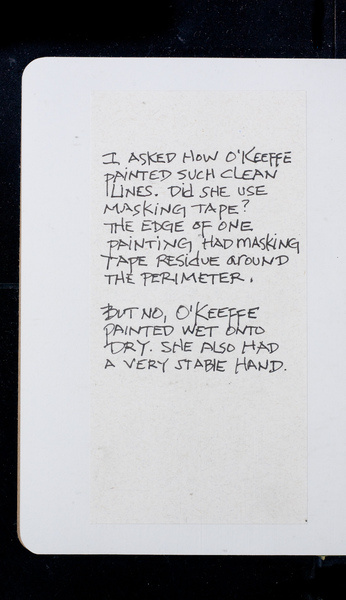 I ASKED HOW O'KEEFFE
PAINTED SUCH CLEAN
LINES. DID SHE USE
MASKING TAPE?
THE EDGE OF ONE
PAINTING HAD MASKING
TAPE RESIDUE AROUND
THE PERIMETER.
BUT NO, O'KEEFFE
PAINTED WET ONTO
DRY. SHE ALSO HAD
A VERY STABLE HAND.